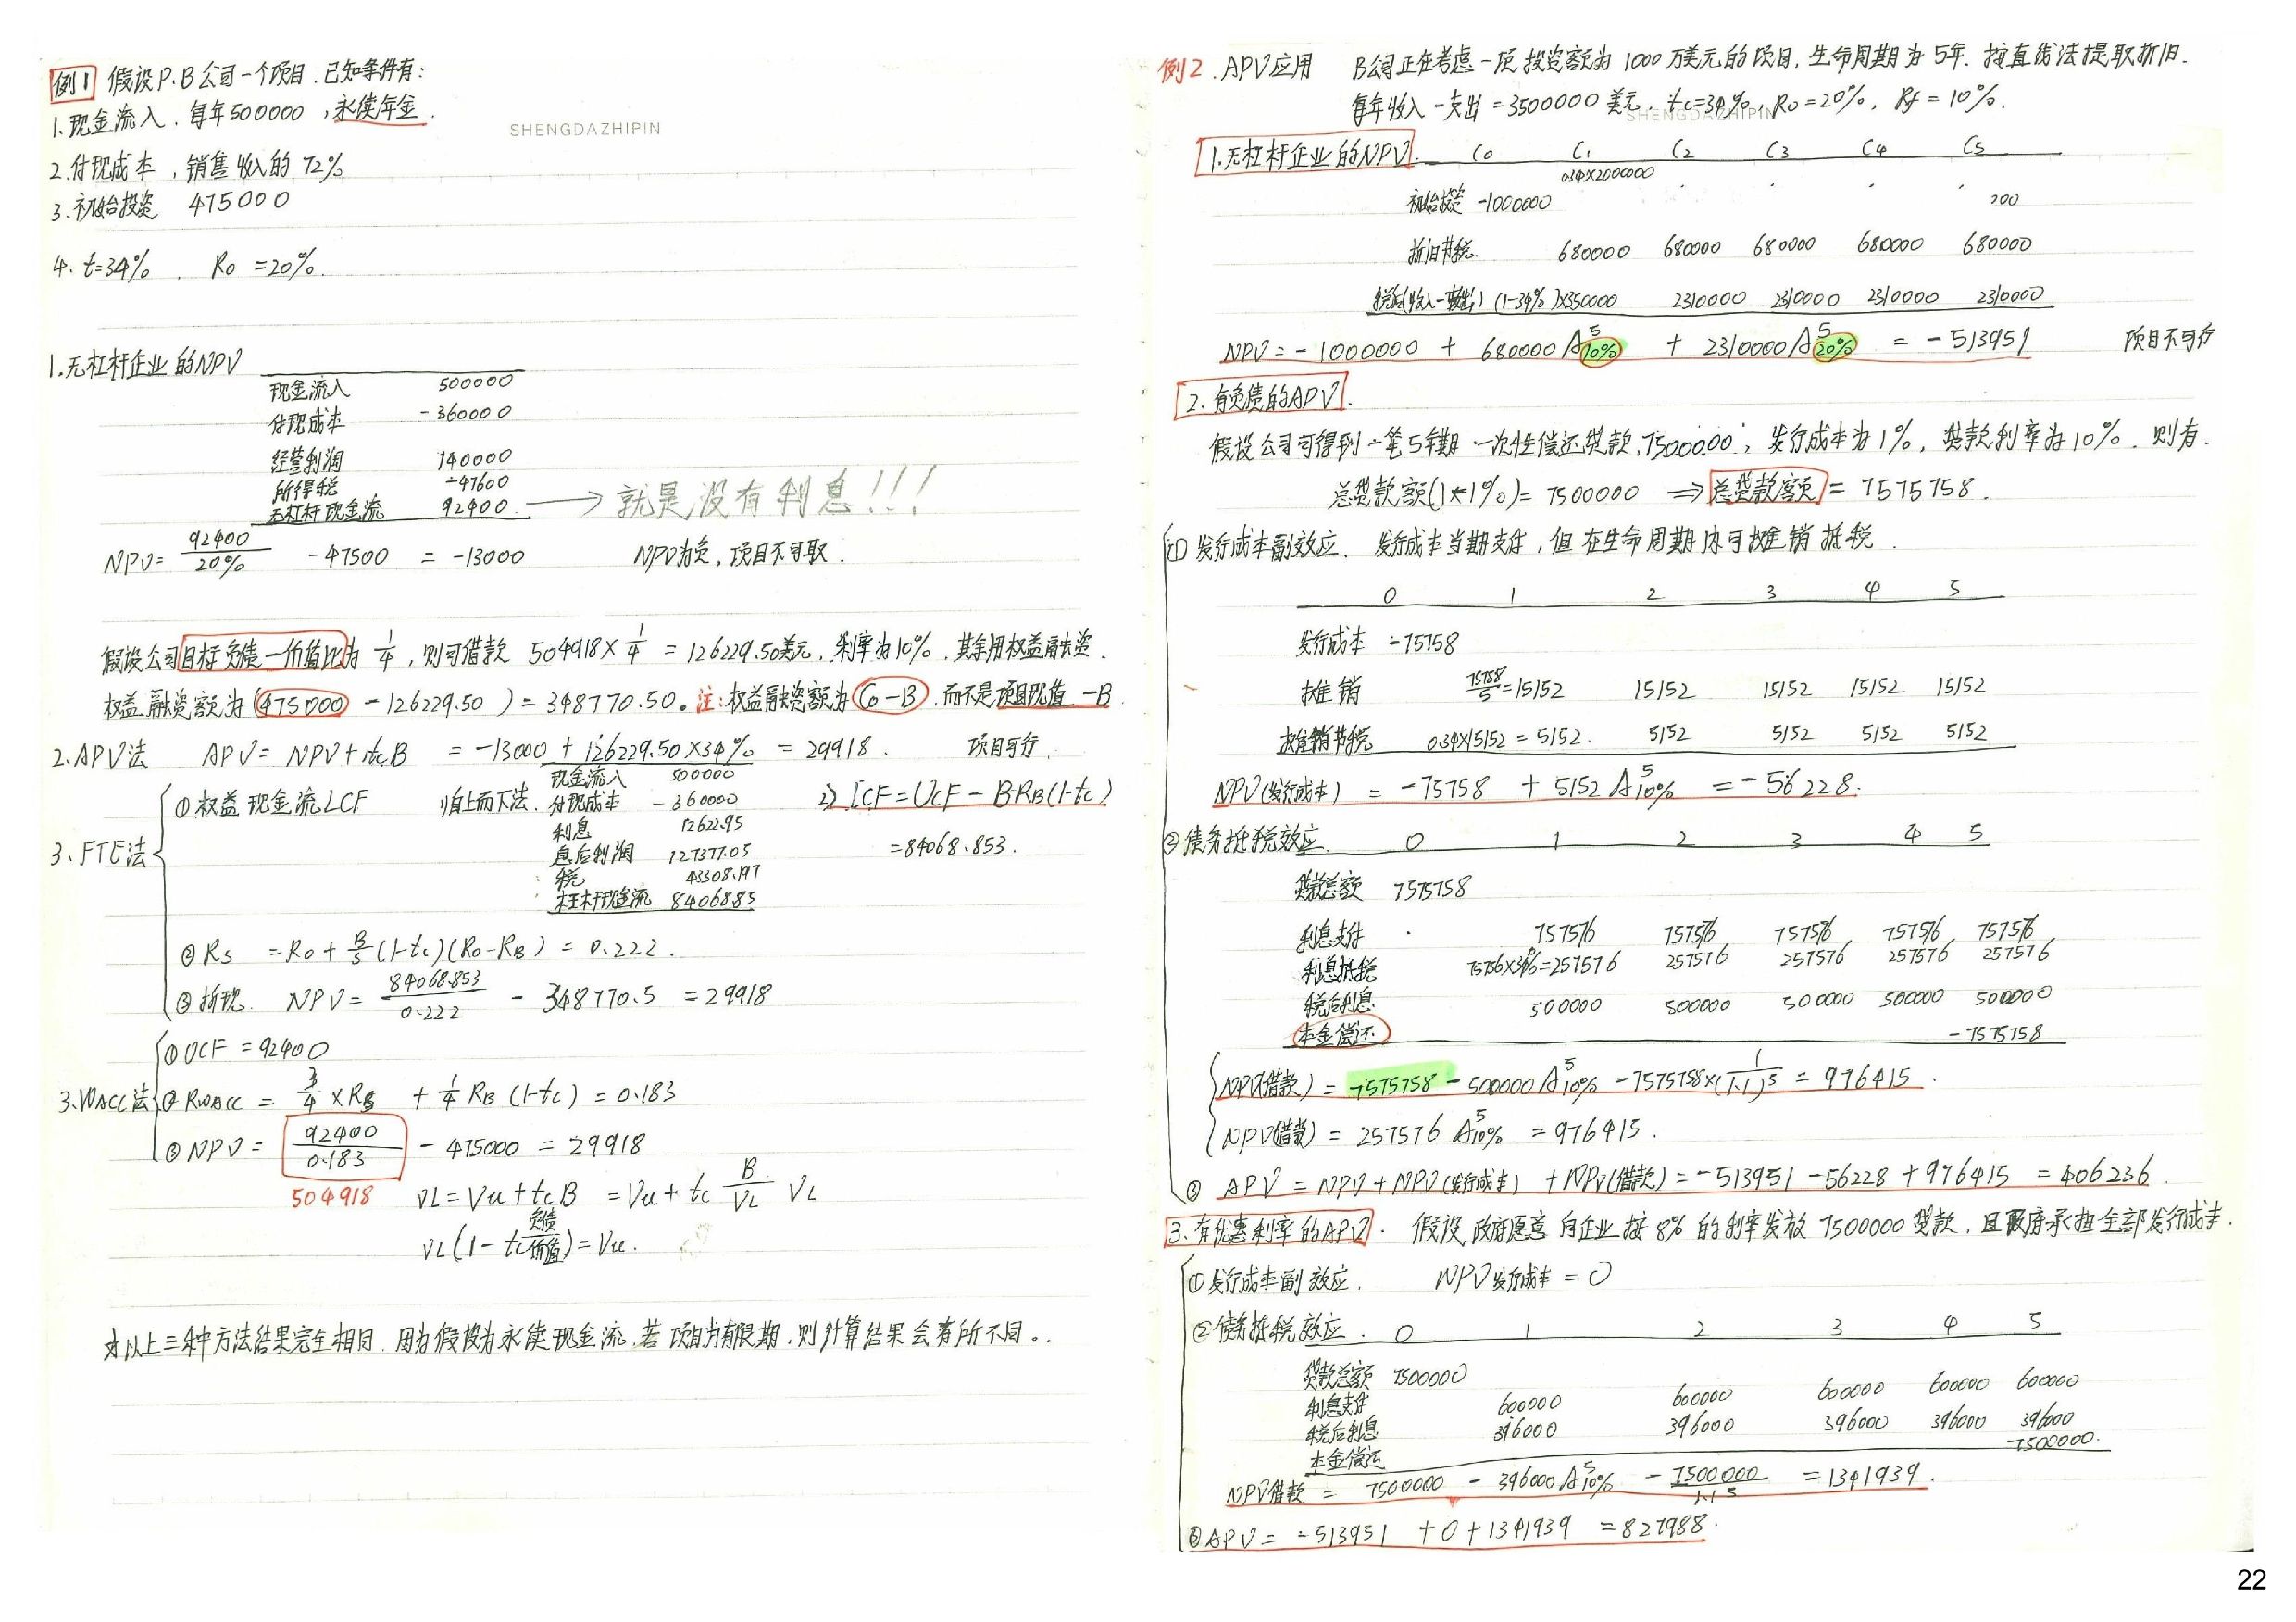 例1 假设P.B公司一个项目.已知条件有:
1.现金流入.每年500000,永续年金.
SHENGDAZHIPIN
2.付现成本,销售收入的72%
3.初始投资 475000
4. t=34%. R0 =20%.
1.无杠杆企业的NPV
现金流入 500000
付现成本 -360000
经营利润 140000
所得税 -47600
无杠杆现金流 92400 → 就是没有利息!!!
NPV= 92400/20% - 47500 = -13000 NPV为负,项目不可取.
假设公司目标负债—价值比为 1/4 ,则可借款 504918×1/4 = 126229.50美元.利率为10%.其余用权益融资.
权益融资额为(475000 -126229.50 )=348770.50。注:权益融资额为C0-B.而不是项目现值-B.
2.APV法 APV= NPV+tcB =-13000 + 126229.50×34% = 29918. 项目可行.
3.FTE法
①权益现金流LCF 1)自上而下法.
现金流入 500000
付现成本 -360000
利息 12622.95
息后利润 127377.05
税 43308.197
杠杆现金流 84068.85
2) LCF=UCF-BRB(1-tc)
=84068.853.
②Rs =R0+ B/S (1-tc)(R0-RB) = 0.222.
③折现. NPV= 84068.853/0.222 - 348770.5 =29918
3.WACC法
①UCF =92400
② RWACC = 3/4 ×RS + 1/4 RB (1-tc) = 0.183
③ NPV = 92400/0.183 - 475000 = 29918
504918 VL=Vu+tcB =Vu+ tc B/VL VL
VL(1- tc 负债/价值)=Vu.
以上三种方法结果完全相同.因为假设为永续现金流.若项目为有限期,则计算结果会有所不同。.
例2.APV应用 B公司正在考虑一项投资额为1000万美元的项目,生命周期为5年.按直线法提取折旧.
每年收入-支出=3500000美元. tc=34%, R0=20%, Rf=10%.
SHENGDAZHIPIN
1.无杠杆企业的NPV. C0 C1 C2 C3 C4 C5
0.34×2000000
初始投资 -1000000 200
折旧节税. 680000 680000 680000 680000 680000
税后(收入-支出) (1-34%)×350000 2310000 2310000 2310000 2310000
NPV=-1000000 + 680000 A⁵10% + 2310000A⁵20% = -513951 项目不可行
2.有负债的APV.
假设公司可得到一笔5年期一次性偿还贷款,7500000,发行成本为1%,贷款利率为10%.则有.
总贷款额(1-1%)=7500000 ⇒总贷款额=7575758.
①发行成本副效应. 发行成本当期支付,但在生命周期内可摊销抵税.
0 1 2 3 4 5
发行成本 -75758
摊销 75758/5=15152 15152 15152 15152 15152
摊销节税 0.34×15152=5152. 5152 5152 5152 5152
NPV(发行成本) = -75758 + 5152 A⁵10% =-56228.
②债务抵税效应. 0 1 2 3 4 5
贷款总额 7575758
利息支付 757576 757576 757576 757576 757576
利息抵税 75756×34%=257576 257576 257576 257576 257576
税后利息 500000 500000 500000 500000 500000
本金偿还 -7575758
NPV(借款) = 7575758 - 500000A⁵10% -7575758×(1/1.1)⁵ = 976415.
NPV(借款) = 257576 A⁵10% =976415.
③ APV =NPV+NPV(发行成本) +NPV(借款)=-513951-56228+976415 =406236.
3.有优惠利率的APV. 假设政府愿意向企业按8%的利率发放7500000贷款,且政府承担全部发行成本.
①发行成本副效应. NPV发行成本=0
②债务抵税效应. 0 1 2 3 4 5
贷款总额 7500000
利息支付 600000 600000 600000 600000 600000
税后利息 396000 396000 396000 396000 396000
本金偿还 -7500000.
NPV借款 = 7500000 - 396000A⁵10% - 7500000/1.1⁵ =1341939.
③APV= -513951 +0+1341939 =827988.
22